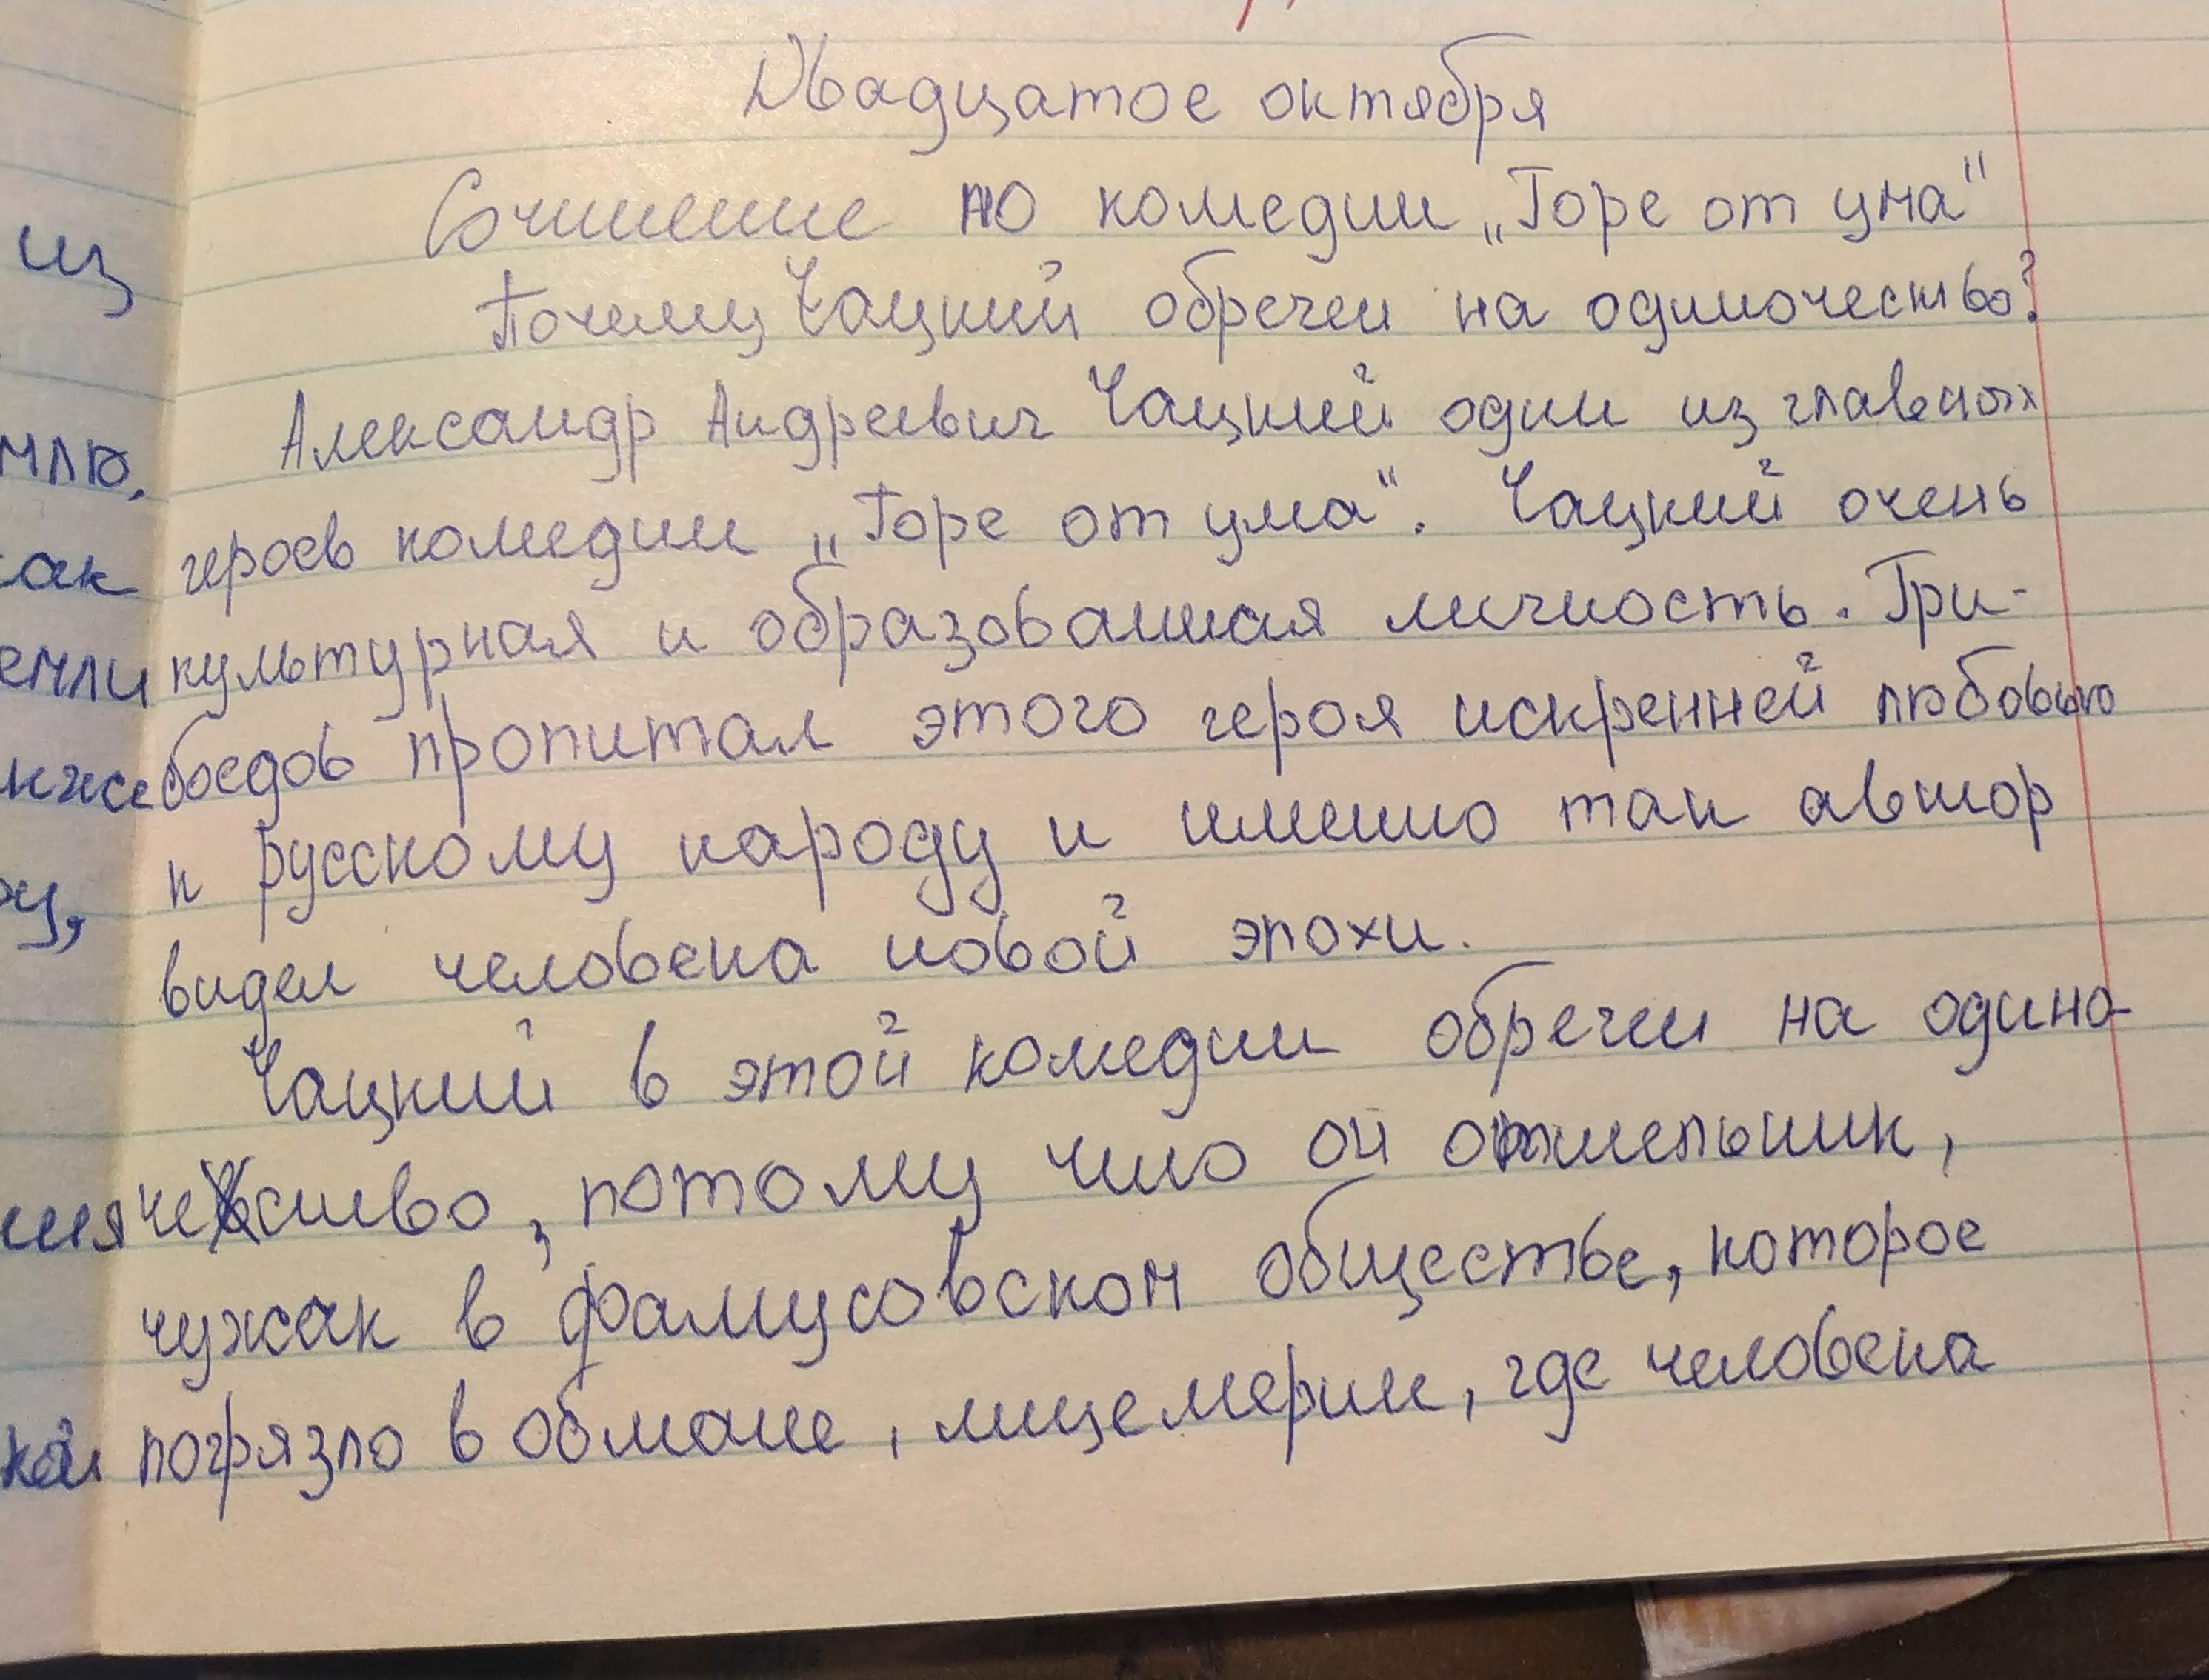 Двадцатое октября
Сочинение по комедии „Горе от ума"
Почему Чацкий обречен на одиночество?
Александр Андреевич Чацкий один из главных
героев комедии „Горе от ума". Чацкий очень
культурная и образованная личность. Гри-
боедов пропитал этого героя искренней любовью
к русскому народу и именно так автор
видел человека новой эпохи.
Чацкий в этой комедии обречен на одино-
чество, потому что он отшельник,
чужак в фамусовском обществе, которое
погрязло в обмане, лицемерии, где человека
из
млю.
как
емли
кже
ру,
ния
кой